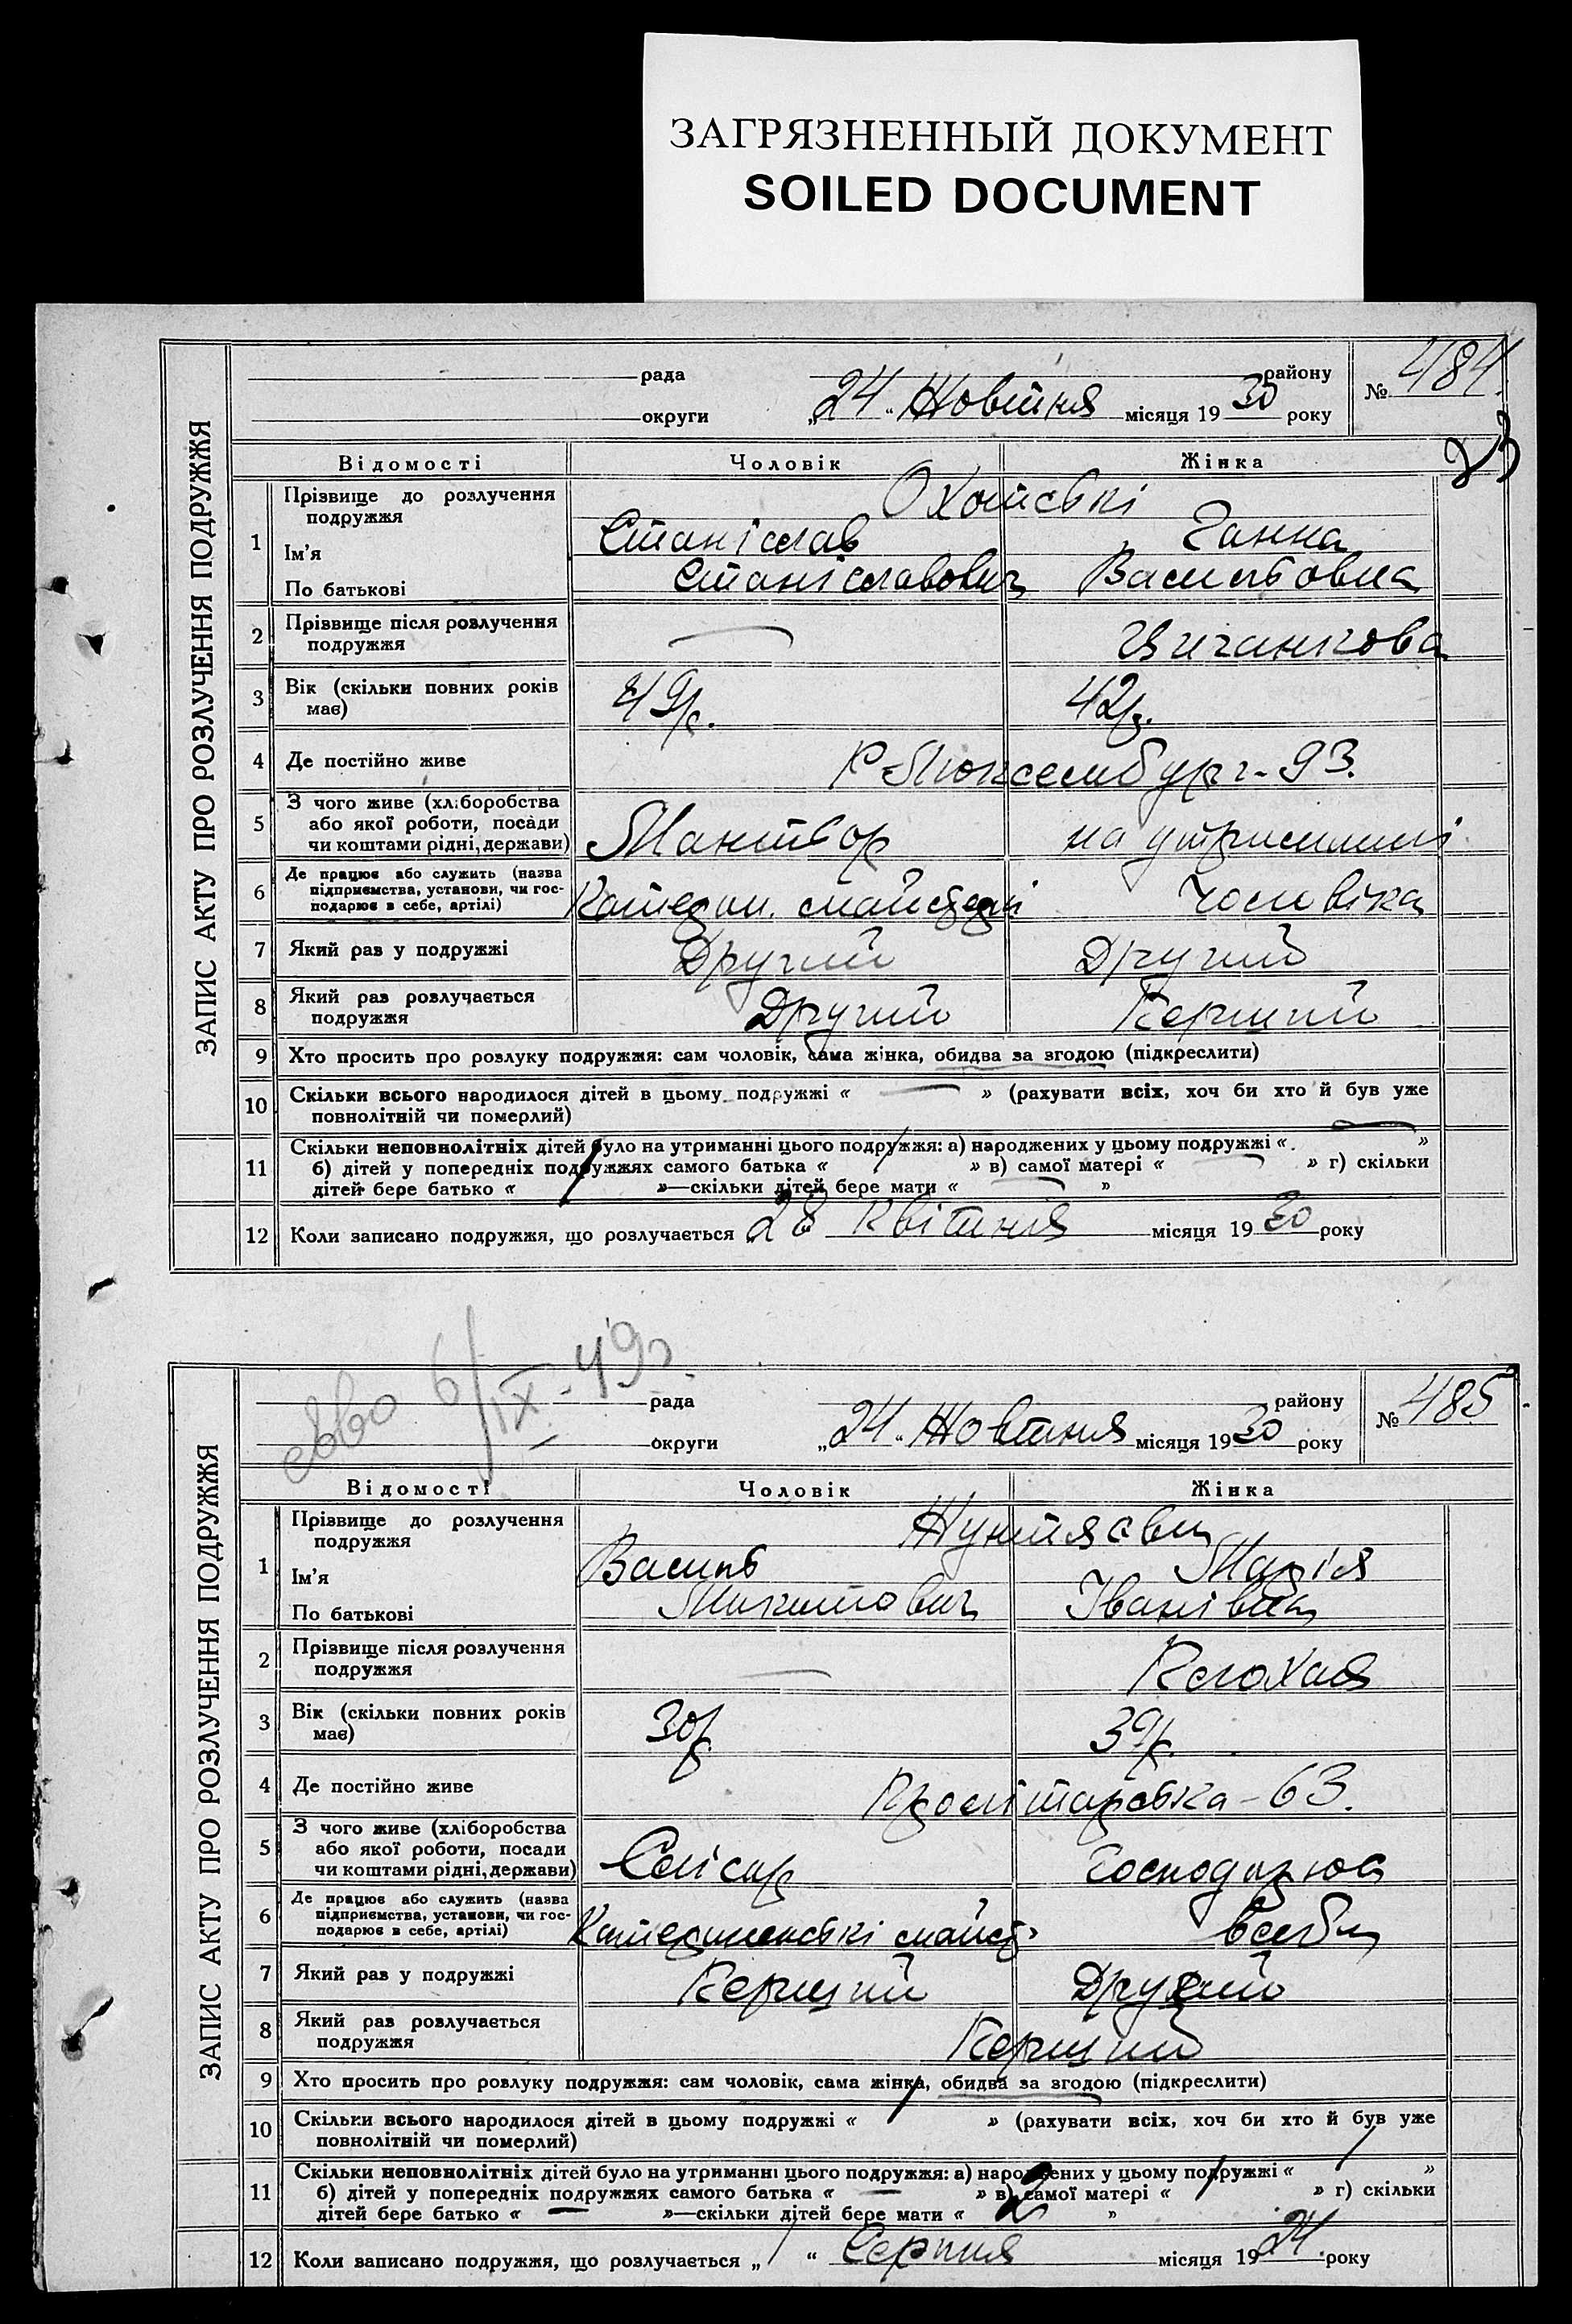 ЗАГРЯЗНЕННЫЙ ДОКУМЕНТ
SOILED DOCUMENT
ЗАПИС АКТУ ПРО РОЗЛУЧЕННЯ ПОДРУЖЖЯ
рада району
№ 484
округи „24“ Жовтня місяця 1930 року
23
Відомості Чоловік Жінка
1 Прізвище до розлучення подружжя
Охотські
Ім'я Станіслав Ганна
По батькові Станіславович Васильовна
2 Прізвище після розлучення
подружжя
— Циганкова
3 Вік (скільки повних років
має)
49р. 42р.
4 Де постійно живе Р Люксембург-93.
5 З чого живе (хліборобства
або якої роботи, посади
чи коштами рідні, держави)
Мантьор на утриманні
6 Де працює або служить (назва
підприємства, установи, чи гос-
подарює в себе, артілі)
Катерин. майстерні чоловіка
7 Який раз у подружжі Другий Другий
8 Який раз розлучається
подружжя
Другий Перший
9 Хто просить про розлуку подружжя: сам чоловік, сама жінка, обидва за згодою (підкреслити)
10 Скільки всього народилося дітей в цьому подружжі « — » (рахувати всіх, хоч би хто й був уже
повнолітній чи померлий)
11 Скільки неповнолітніх дітей було на утриманні цього подружжя: а) народжених у цьому подружжі « — »
б) дітей у попередніх подружжях самого батька « » в) самої матері « — » г) скільки
дітей бере батько « »—скільки дітей бере мати « — »
12 Коли записано подружжя, що розлучається „28“ Квітня місяця 1930 року
6/IX-49г.
ЗАПИС АКТУ ПРО РОЗЛУЧЕННЯ ПОДРУЖЖЯ
рада району
№ 485
округи „24“ Жовтня місяця 1930 року
Відомості Чоловік Жінка
1 Прізвище до розлучення
подружжя
Ім'я Василь Марія
По батькові Микитович Іванівна
2 Прізвище після розлучення
подружжя
—
3 Вік (скільки повних років
має)
30р. 39р.
4 Де постійно живе Пролітарська-63.
5 З чого живе (хліборобства
або якої роботи, посади
чи коштами рідні, держави)
Слісар Господарює
6 Де працює або служить (назва
підприємства, установи, чи гос-
подарює в себе, артілі)
Катерининські майст. в себе
7 Який раз у подружжі Перший Другий
8 Який раз розлучається
подружжя
Перший
9 Хто просить про розлуку подружжя: сам чоловік, сама жінка, обидва за згодою (підкреслити)
10 Скільки всього народилося дітей в цьому подружжі « » (рахувати всіх, хоч би хто й був уже
повнолітній чи померлий)
11 Скільки неповнолітніх дітей було на утриманні цього подружжя: а) народжених у цьому подружжі « »
б) дітей у попередніх подружжях самого батька « — » в) самої матері « » г) скільки
дітей бере батько « — »—скільки дітей бере мати « 2 »
12 Коли записано подружжя, що розлучається „1“ Серпня місяця 1924 року